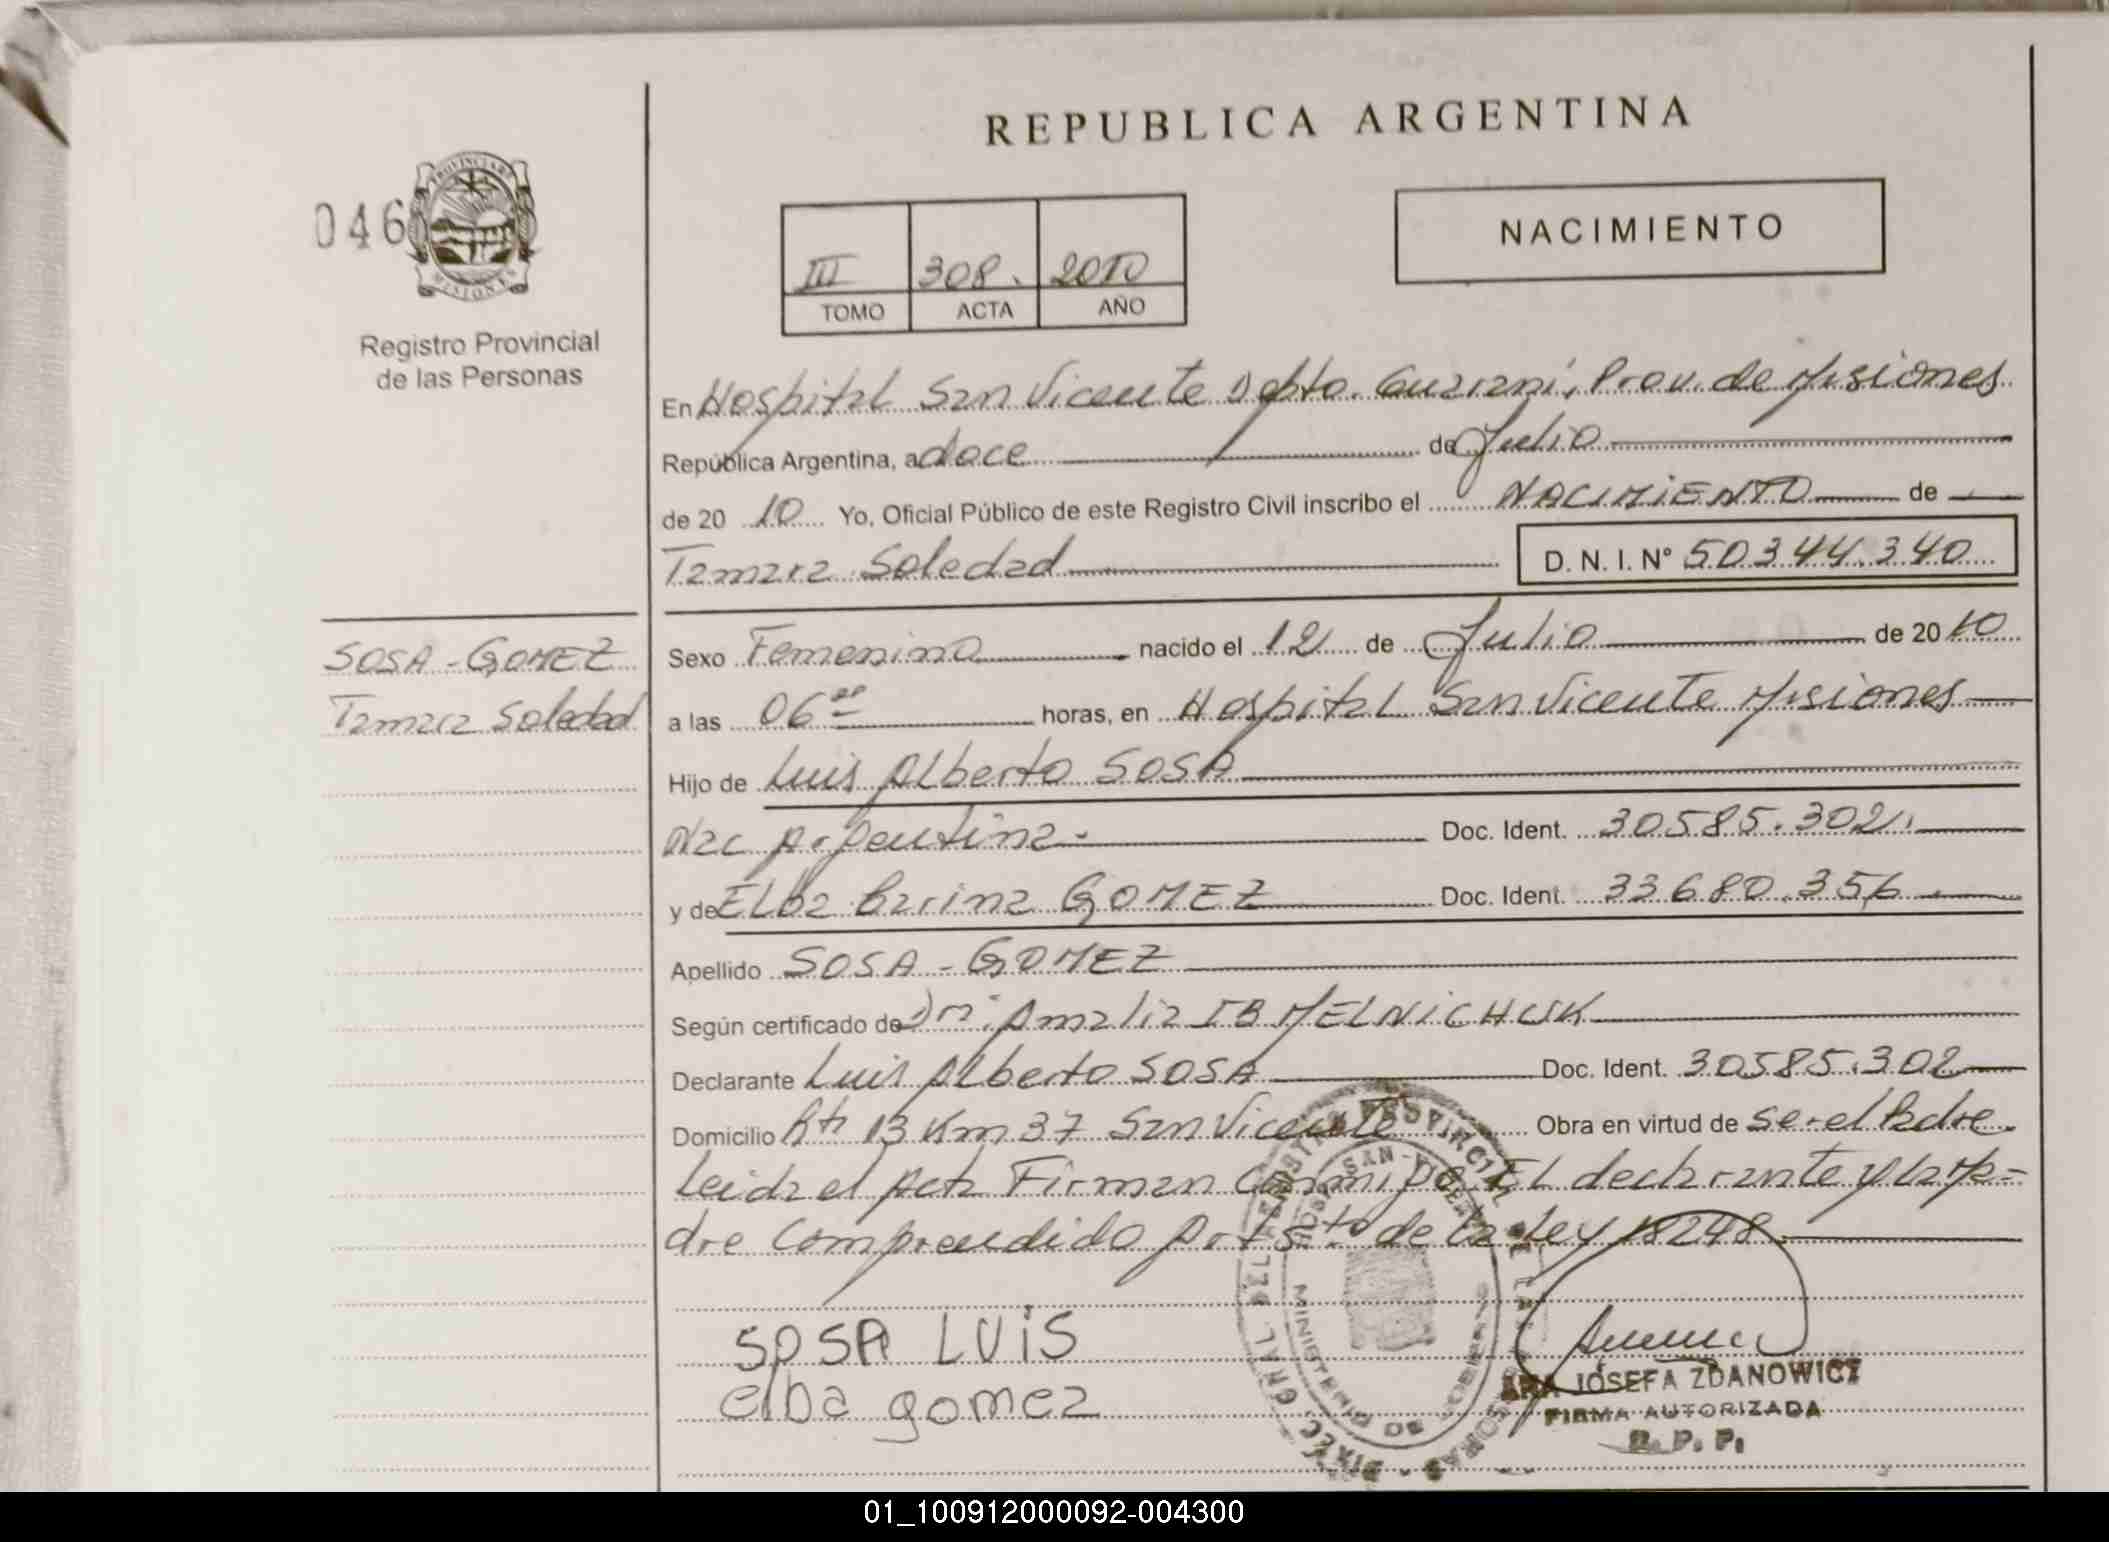 REPUBLICA ARGENTINA
046
PROVINCIA DE
MISIONES
Registro Provincial
de las Personas
III 308. 2010
TOMO ACTA AÑO
NACIMIENTO
En Hospital San Vicente Dpto. Guarani, Prov. de Misiones
República Argentina, a doce de Julio
de 20 10 Yo, Oficial Público de este Registro Civil inscribo el NACIMIENTO de
Tamara Soledad D. N. I. Nº 50344.340
SOSA - GOMEZ
Tamara Soledad
Sexo Femenino nacido el 12 de Julio de 20 10
a las 06 horas, en Hospital San Vicente Misiones
Hijo de Luis Alberto SOSA
Nac Argentina. Doc. Ident. 30585.302.
y de Elba Carina GOMEZ Doc. Ident. 33680.356
Apellido SOSA - GOMEZ
Según certificado de Dra. Amalia IB MELNICHUK
Declarante Luis Alberto SOSA Doc. Ident. 30585.302
Domicilio Rta 13 Km 37 San Vicente Obra en virtud de ser el Padre.
Leida el Acta Firman Conmigo El declarante y la Ma=
dre Comprendido Art 5to de la Ley 18248
SOSA LUIS
elba gomez
DIREC. GRAL. DEL REGISTRO PROVINCIAL DE LAS PERSONAS
MINISTERIO DE GOBIERNO
ANA JOSEFA ZDANOWICZ
FIRMA AUTORIZADA
R. P. P.
01_100912000092-004300